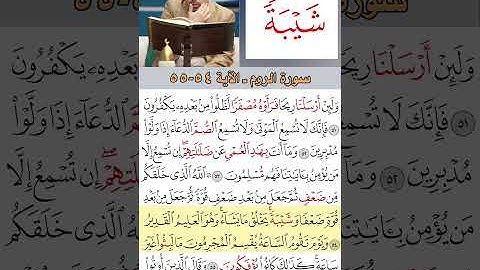 شَيْبَةً
سورة الروم - الآية ٥٤-٥٥
وَلَئِنْ أَرْسَلْنَا رِيحًا فَرَأَوْهُ مُصْفَرًّا لَّظَلُّوا مِنْ بَعْدِهِ يَكْفُرُونَ
٥١ فَإِنَّكَ لَا تُسْمِعُ الْمَوْتَىٰ وَلَا تُسْمِعُ الصُّمَّ الدُّعَاءَ إِذَا وَلَّوْا
مُدْبِرِينَ ٥٢ وَمَا أَنتَ بِهَادِ الْعُمْيِ عَن ضَلَالَتِهِمْ إِن تُسْمِعُ إِلَّا
مَن يُؤْمِنُ بِآيَاتِنَا فَهُم مُّسْلِمُونَ ٥٣ اللَّهُ الَّذِي خَلَقَكُم
مِّن ضَعْفٍ ثُمَّ جَعَلَ مِنْ بَعْدِ ضَعْفٍ قُوَّةً ثُمَّ جَعَلَ مِنْ بَعْدِ
قُوَّةٍ ضَعْفًا وَشَيْبَةً يَخْلُقُ مَا يَشَاءُ وَهُوَ الْعَلِيمُ الْقَدِيرُ
٥٤ وَيَوْمَ تَقُومُ السَّاعَةُ يُقْسِمُ الْمُجْرِمُونَ مَا لَبِثُوا غَيْرَ
سَاعَةٍ كَذَٰلِكَ كَانُوا يُؤْفَكُونَ ٥٥ وَقَالَ الَّذِينَ أُوتُوا